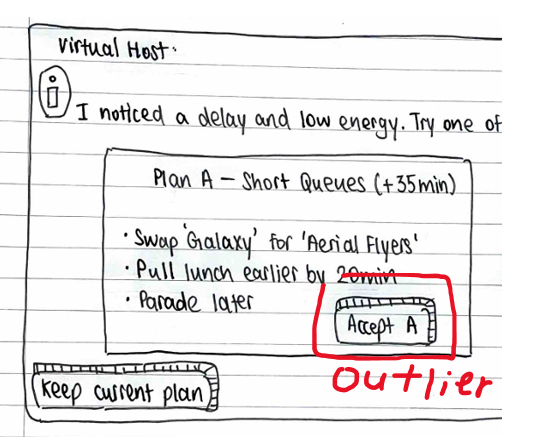 Virtual Host:
I noticed a delay and low energy. Try one of
Plan A – Short Queues (+35min)
• Swap 'Galaxy' for 'Aerial Flyers'
• Pull lunch earlier by 20min
• Parade later
Accept A
Outlier
Keep current plan